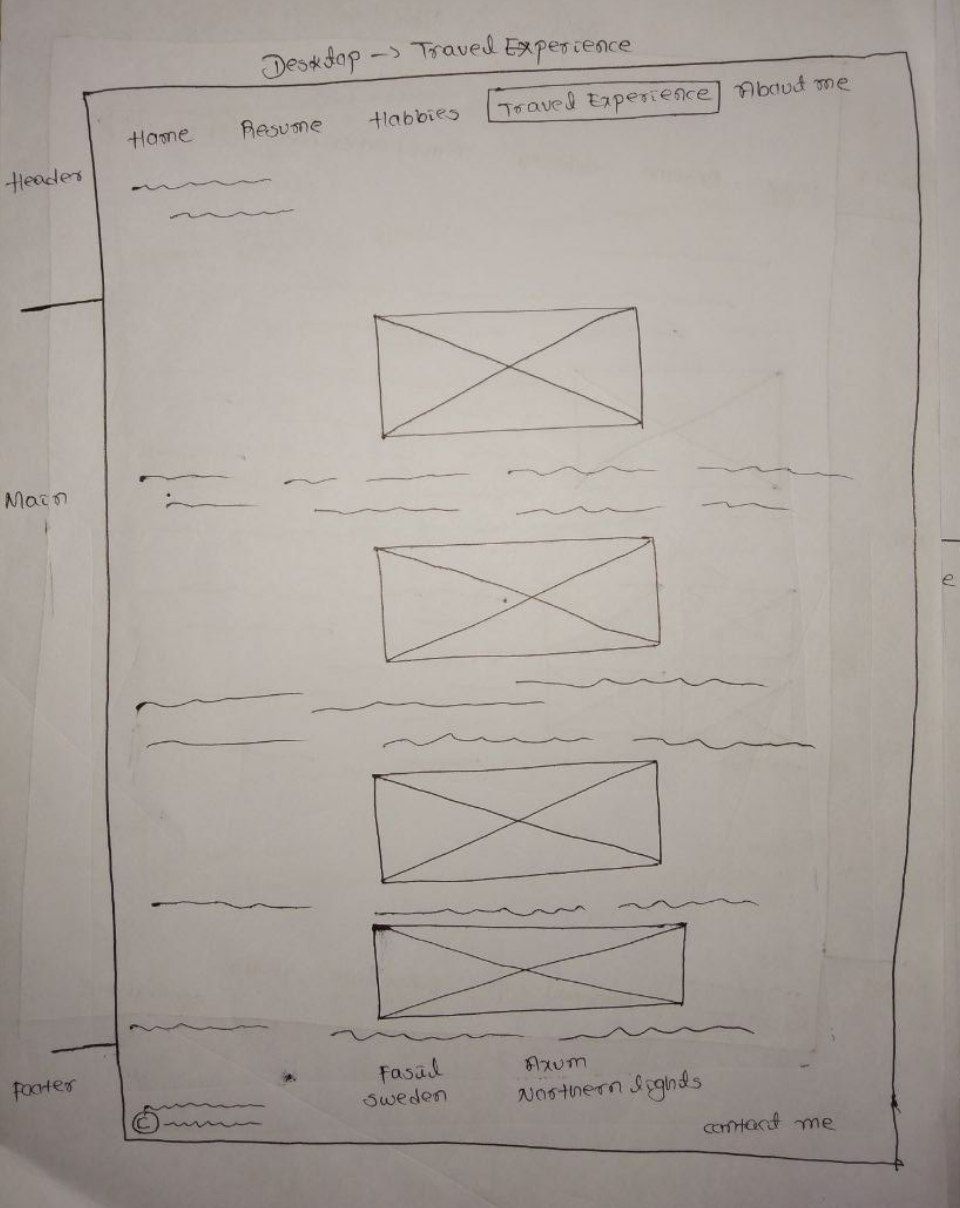 Desktop -> Travel Experience
Home Resume Hobbies Travel Experience About me
Header
Main
e
Footer
Fasil Axum
Sweden Northern lights
© contact me